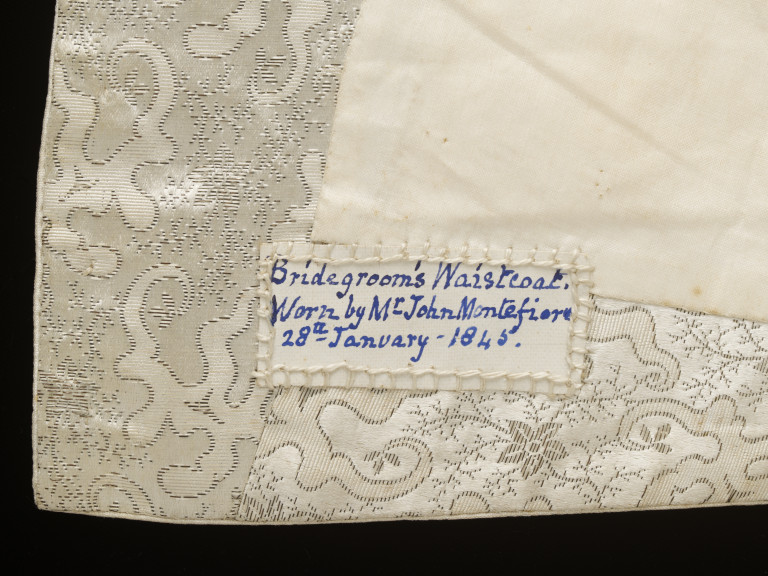 Bridegroom's Waistcoat.
Worn by Mr John Montefiore
28th January - 1845.